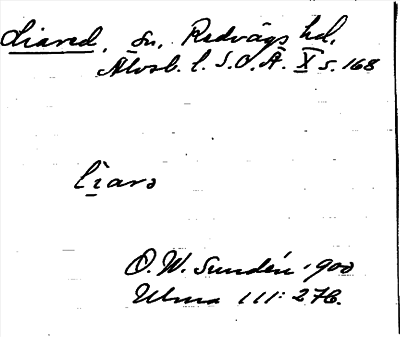 Liared, sn, Redvägs hd,
Älvsb. l. S.O.Ä. X s. 168
lìarə
O. W. Sundén 1900
Ulma 111:276.